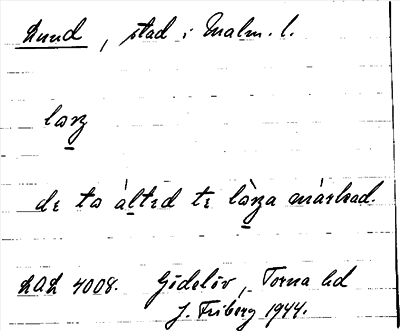 Lund, stad i Malm. l.
lorz
de to àltid te lòrza márkad.
LAL 4008. Gödelöv, Torna hd
J. Friberg 1944.